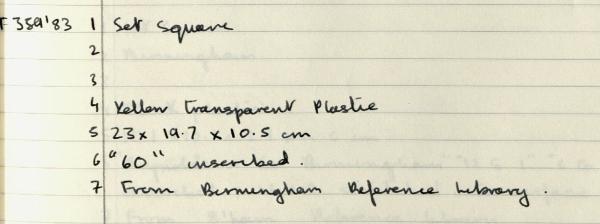 F 359'83 1 Set Square
2
3
4 Yellow Transparent Plastic
5 23 x 19.7 x 10.5 cm
6 "60" inscribed.
7 From Birmingham Reference Library.